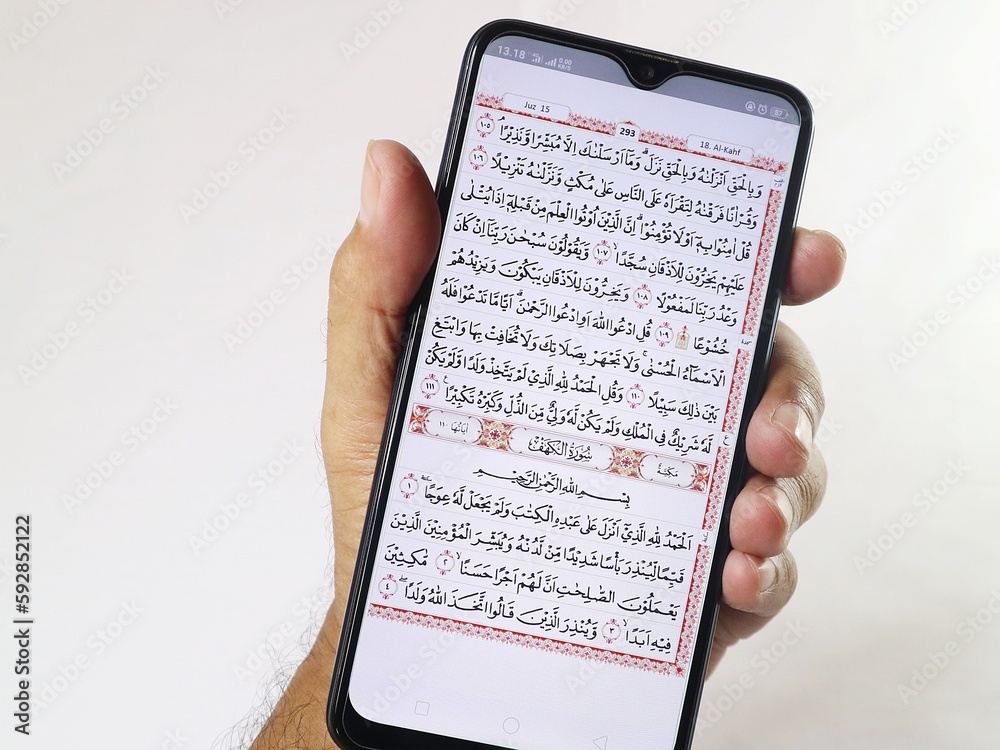 13.18 4G 0.00 KB/S 87
Juz 15 293 18. Al-Kahf
وَبِالْحَقِّ اَنْزَلْنٰهُ وَبِالْحَقِّ نَزَلَۗ وَمَآ اَرْسَلْنٰكَ اِلَّا مُبَشِّرًا وَّنَذِيْرًاۘ ١٠٥
وَقُرْاٰنًا فَرَقْنٰهُ لِتَقْرَاَهٗ عَلَى النَّاسِ عَلٰى مُكْثٍ وَّنَزَّلْنٰهُ تَنْزِيْلًا ١٠٦
قُلْ اٰمِنُوْا بِهٖٓ اَوْ لَا تُؤْمِنُوْاۗ اِنَّ الَّذِيْنَ اُوْتُوا الْعِلْمَ مِنْ قَبْلِهٖٓ اِذَا يُتْلٰى
عَلَيْهِمْ يَخِرُّوْنَ لِلْاَذْقَانِ سُجَّدًاۙ ١٠٧ وَّيَقُوْلُوْنَ سُبْحٰنَ رَبِّنَآ اِنْ كَانَ
وَعْدُ رَبِّنَا لَمَفْعُوْلًا ١٠٨ وَيَخِرُّوْنَ لِلْاَذْقَانِ يَبْكُوْنَ وَيَزِيْدُهُمْ
خُشُوْعًا ۩ ١٠٩ قُلِ ادْعُوا اللّٰهَ اَوِ ادْعُوا الرَّحْمٰنَۗ اَيًّا مَّا تَدْعُوْا فَلَهُ
الْاَسْمَاۤءُ الْحُسْنٰىۚ وَلَا تَجْهَرْ بِصَلَاتِكَ وَلَا تُخَافِتْ بِهَا وَابْتَغِ
بَيْنَ ذٰلِكَ سَبِيْلًا ١١٠ وَقُلِ الْحَمْدُ لِلّٰهِ الَّذِيْ لَمْ يَتَّخِذْ وَلَدًا وَّلَمْ يَكُنْ
لَّهٗ شَرِيْكٌ فِى الْمُلْكِ وَلَمْ يَكُنْ لَّهٗ وَلِيٌّ مِّنَ الذُّلِّ وَكَبِّرْهُ تَكْبِيْرًاࣖ ١١١
مَكِّيَّةٌ سُوْرَةُ الْكَهْفِ اٰيَاتُهَا ١١٠
بِسْمِ اللّٰهِ الرَّحْمٰنِ الرَّحِيْمِ
اَلْحَمْدُ لِلّٰهِ الَّذِيْٓ اَنْزَلَ عَلٰى عَبْدِهِ الْكِتٰبَ وَلَمْ يَجْعَلْ لَّهٗ عِوَجًاۜ ١
قَيِّمًا لِّيُنْذِرَ بَأْسًا شَدِيْدًا مِّنْ لَّدُنْهُ وَيُبَشِّرَ الْمُؤْمِنِيْنَ الَّذِيْنَ
يَعْمَلُوْنَ الصّٰلِحٰتِ اَنَّ لَهُمْ اَجْرًا حَسَنًاۙ ٢ مَّاكِثِيْنَ
فِيْهِ اَبَدًاۙ ٣ وَّيُنْذِرَ الَّذِيْنَ قَالُوا اتَّخَذَ اللّٰهُ وَلَدًاۖ ٤
Adobe Stock | #592852122